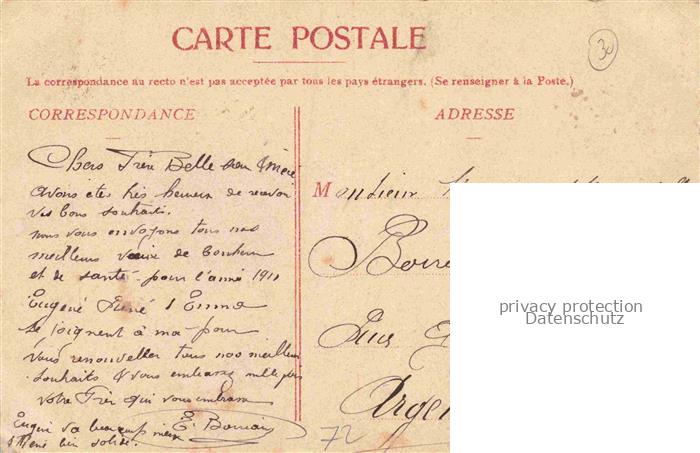 CARTE POSTALE
30
La correspondance au recto n'est pas acceptée par tous les pays étrangers. (Se renseigner à la Poste.)
CORRESPONDANCE
Chers Frère Belle sœur & mère
avons etes très heureux de recevoir
vos bons souhaits.
nous vous envoyons tous nos
meilleurs vœux de bonheur
et de santé pour l'année 1911
Eugené René & Emma
se joignent à moi pour
vous renouveller tous nos meilleurs
souhaits & vous embrasse mille fois
votre Frère qui vous embrasse
E.
Eugéné va beaucoup mieux
& René bien solide.
ADRESSE
Monsieur
Rue
Argen
72
privacy protection
Datenschutz